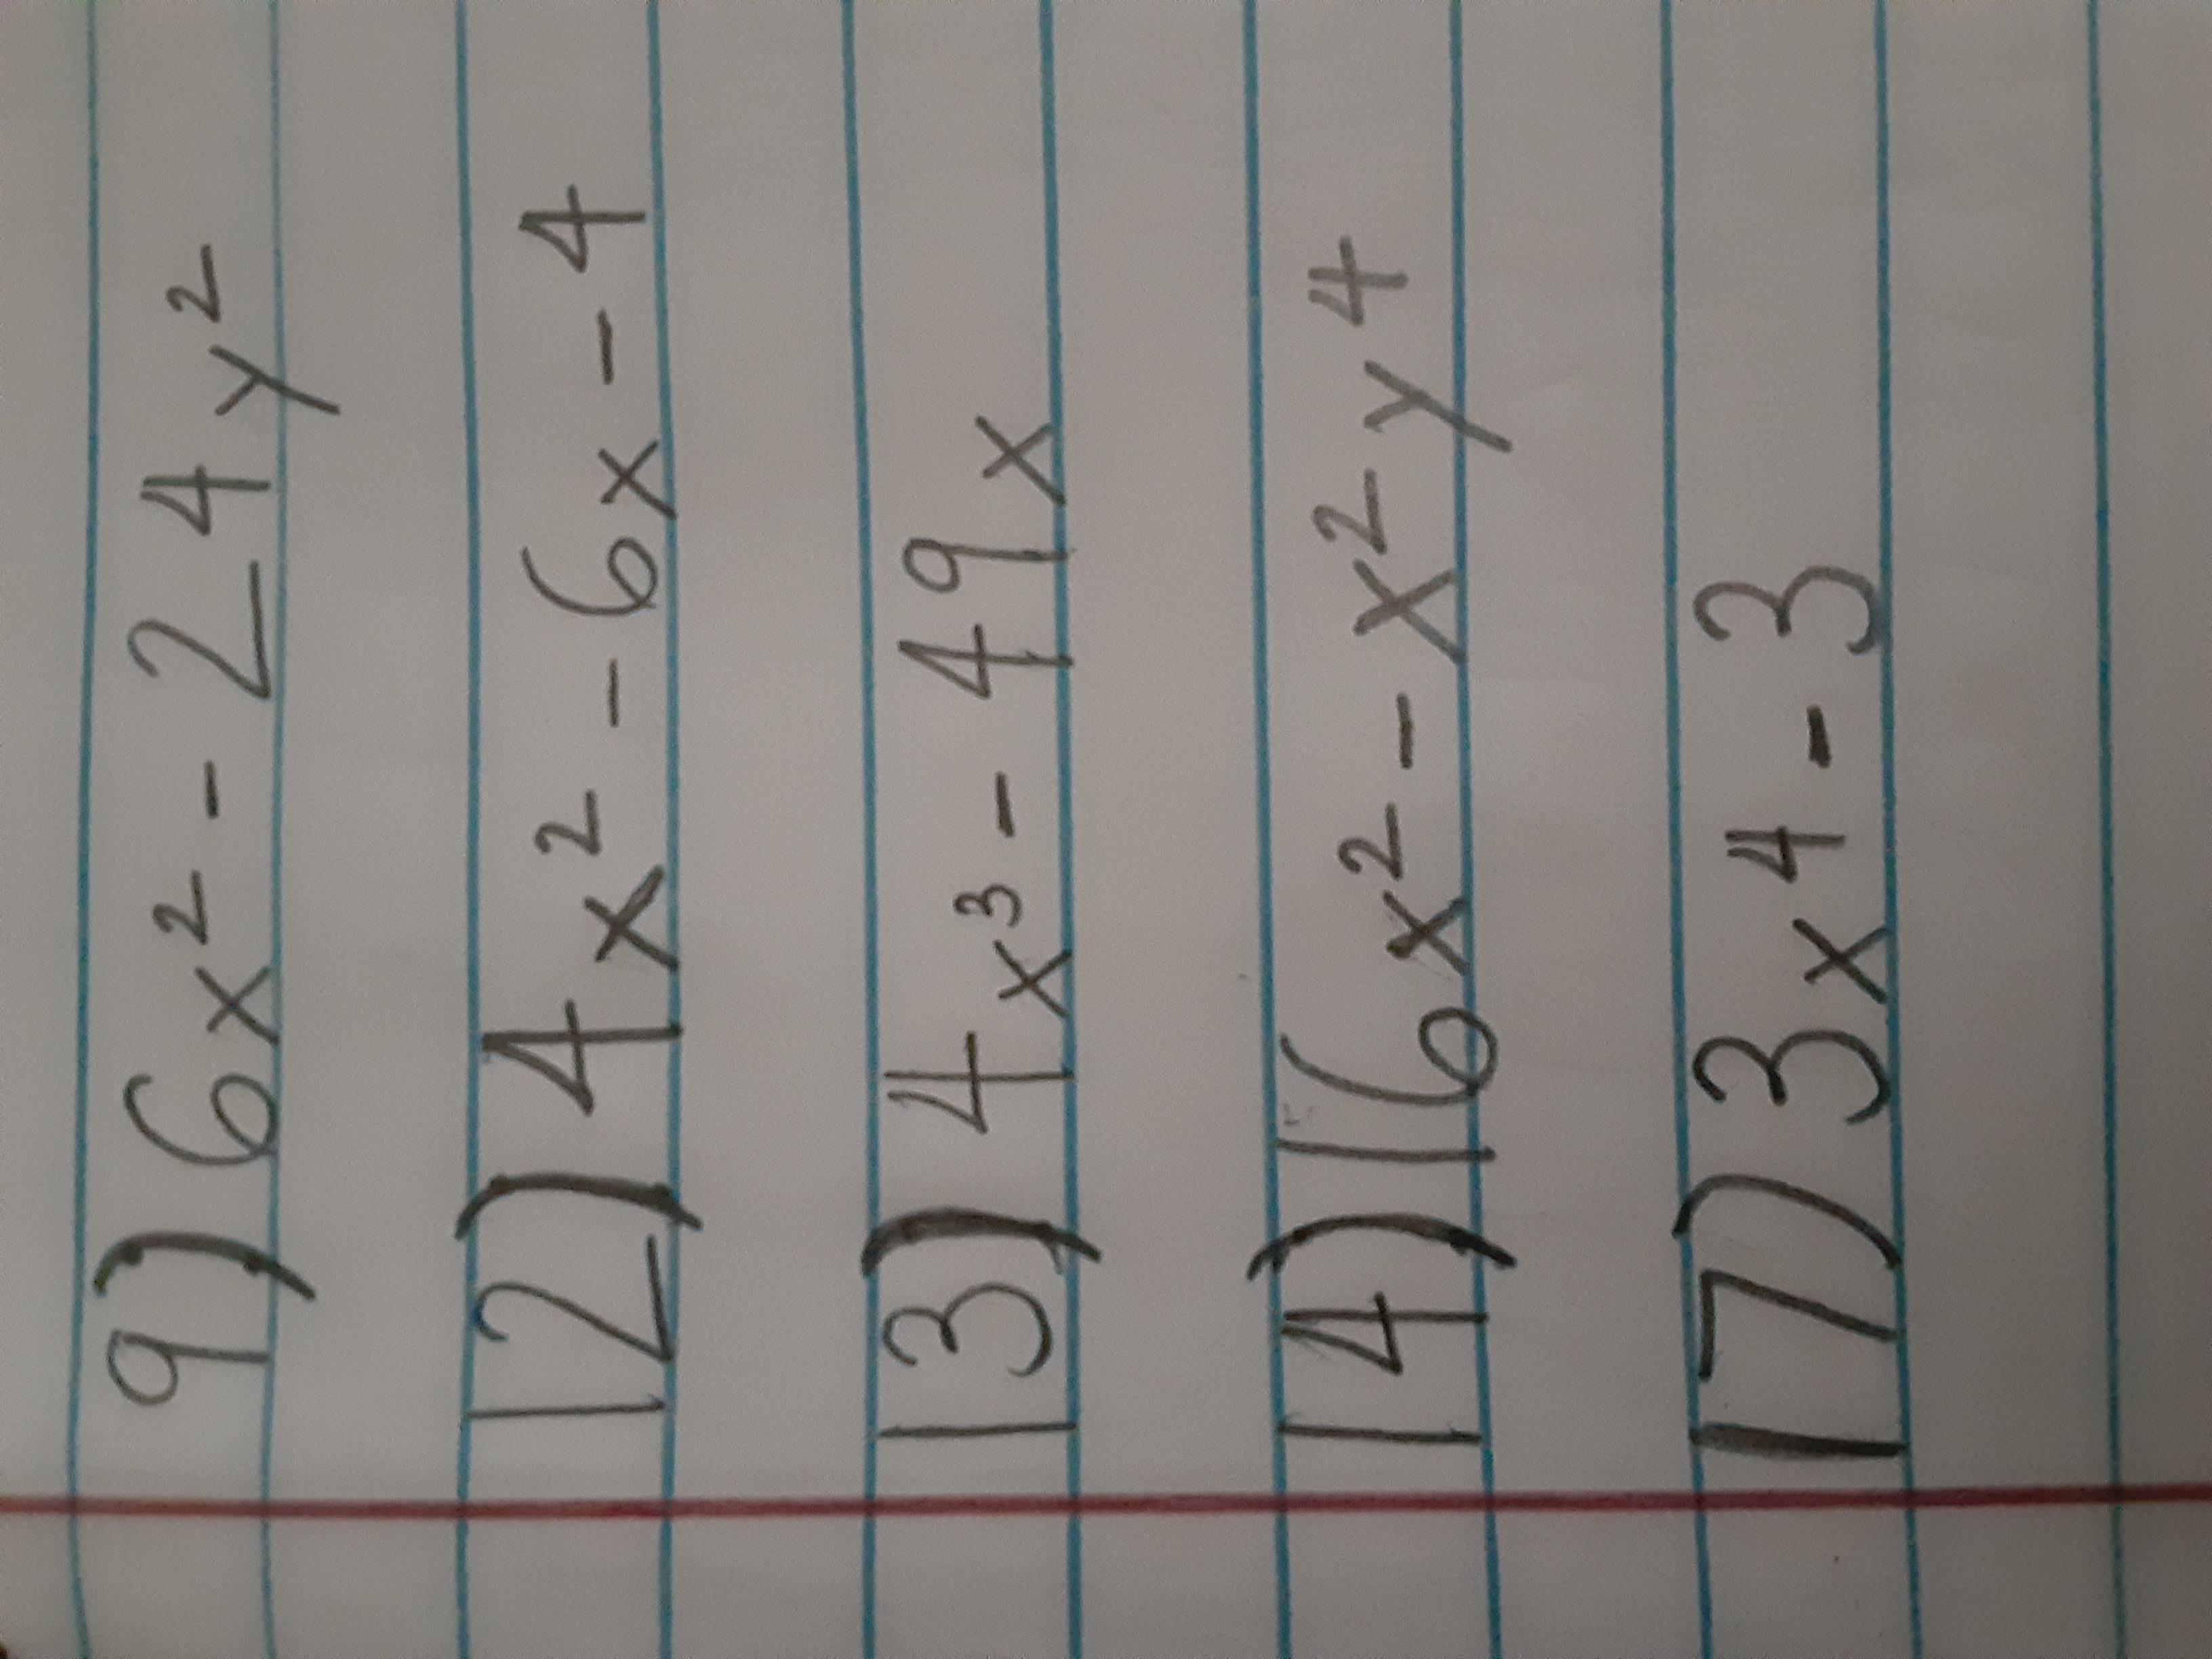 9) 6x² - 24y²
12) 4x² - 6x - 4
13) 4x³ - 49x
14) 16x² - x²y⁴
17) 3x⁴ - 3